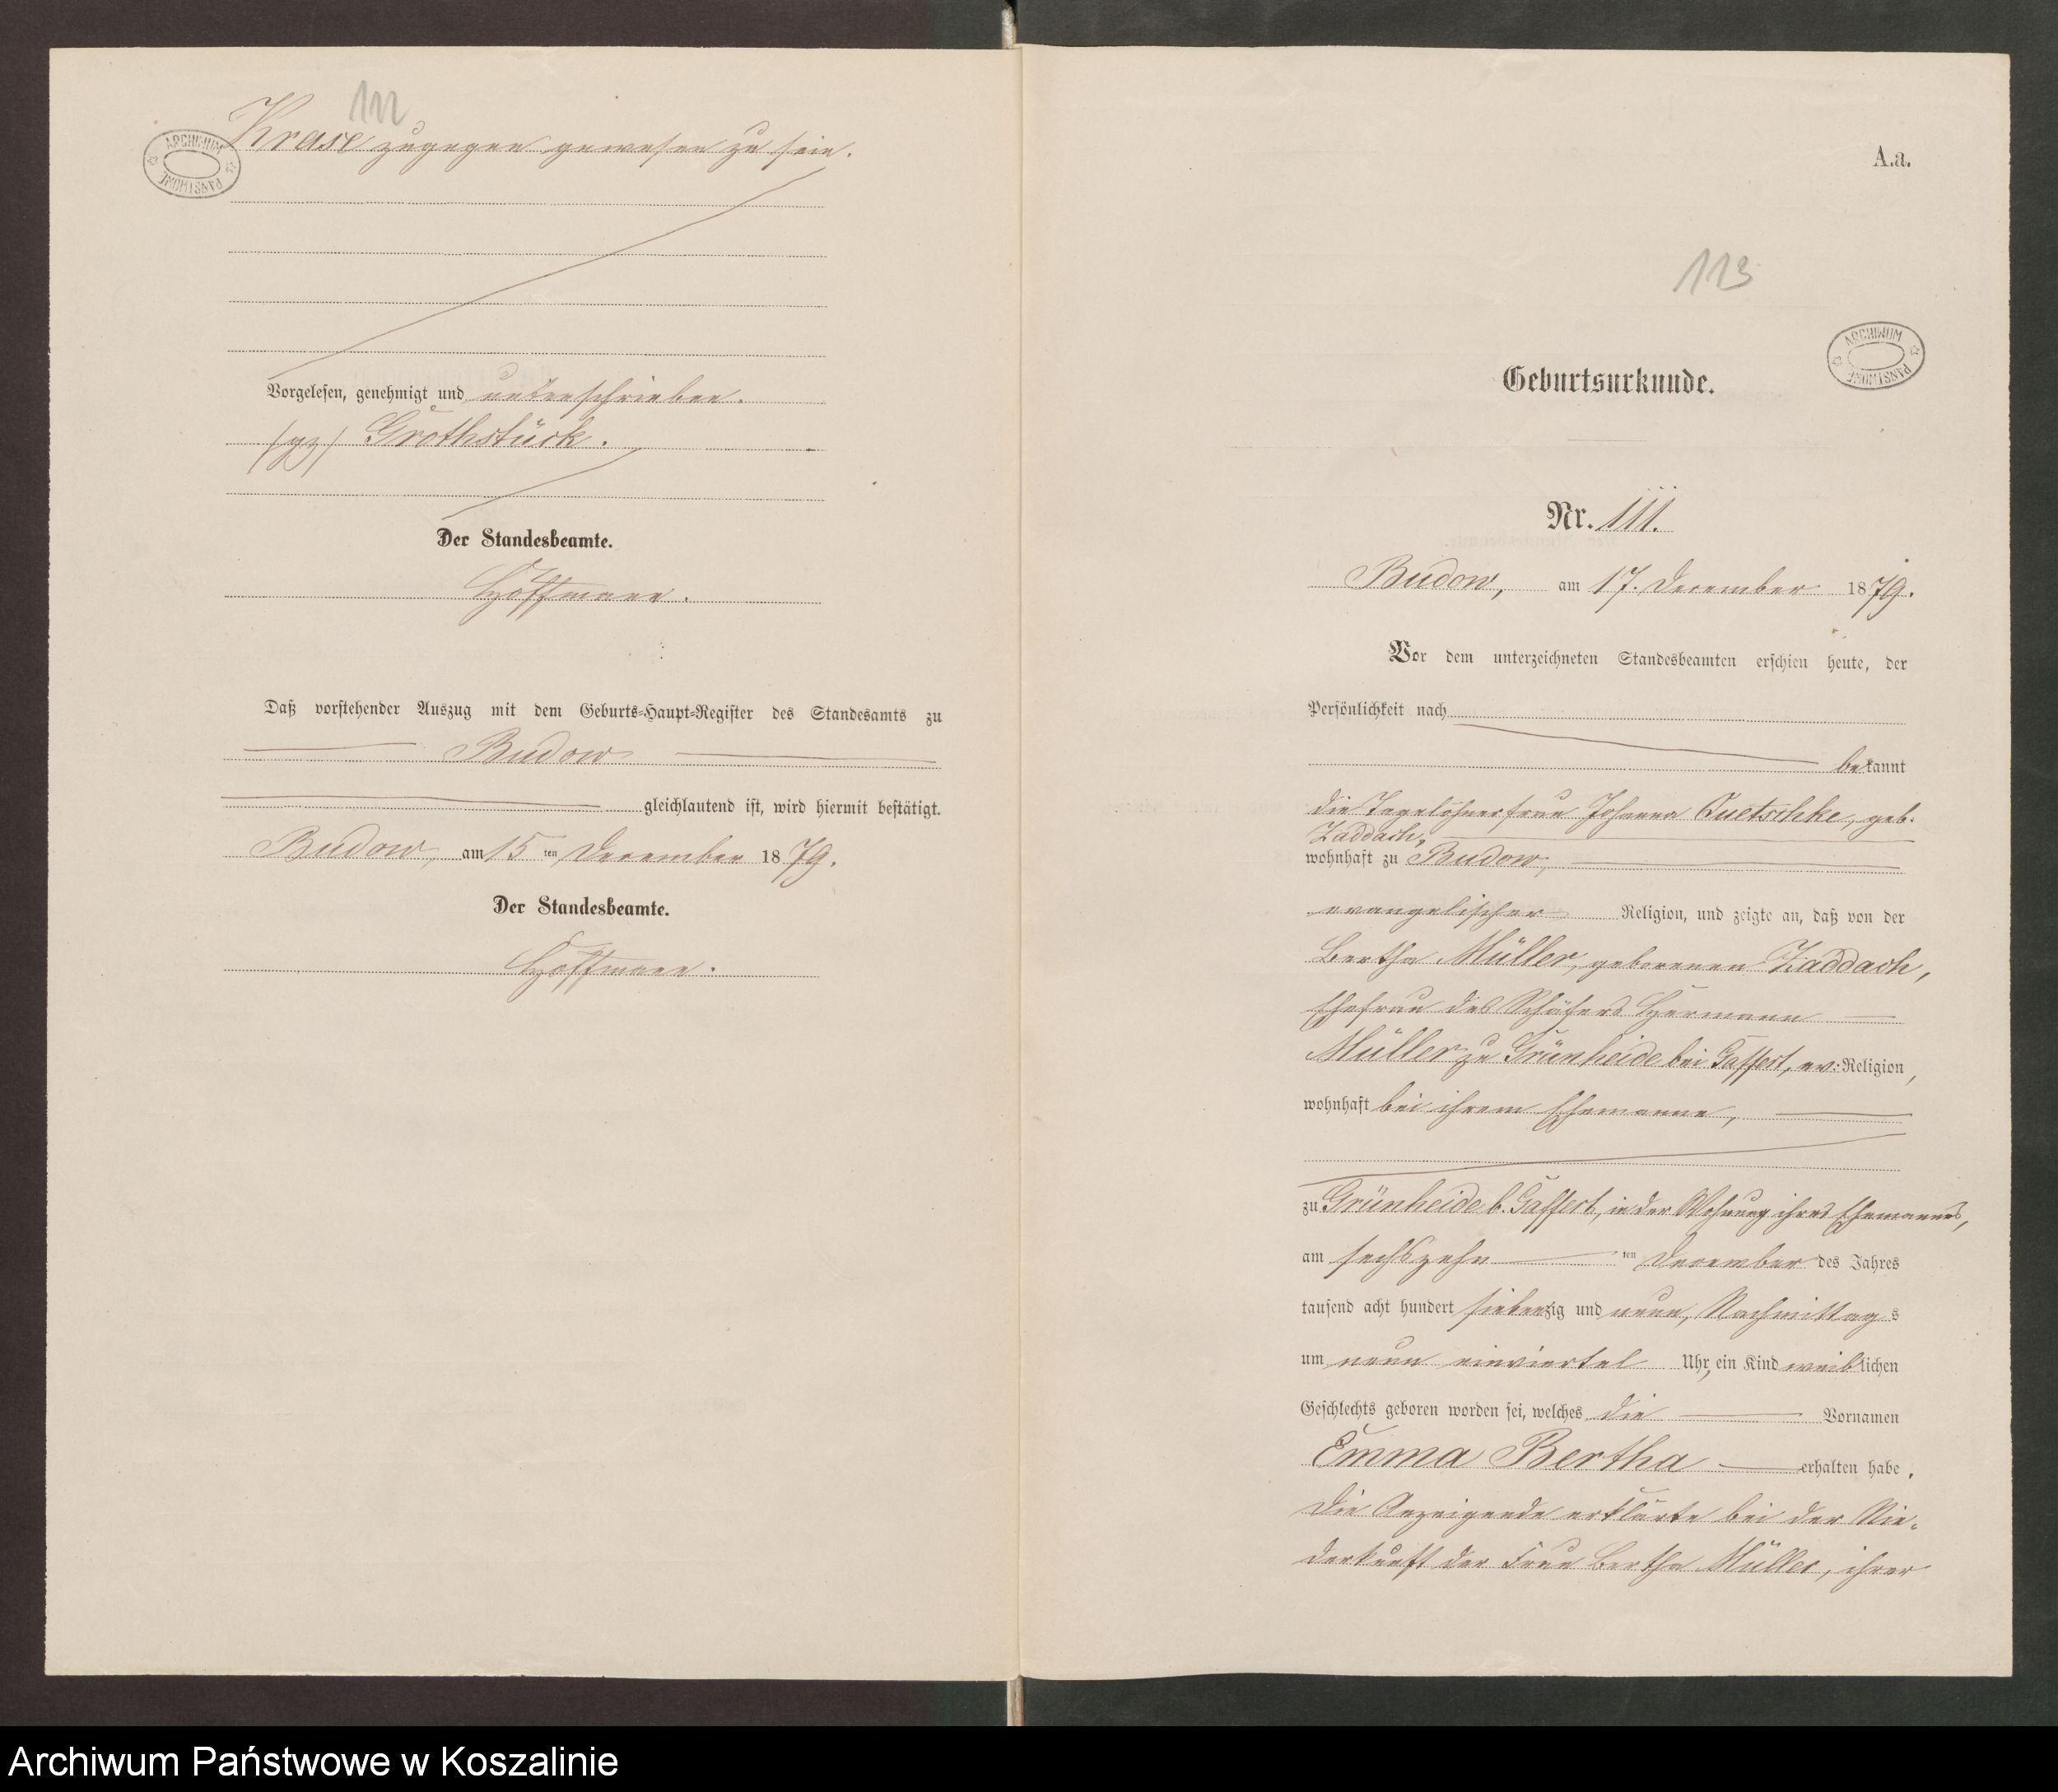 112
ARCHIWUM PAŃSTWOWE
Krase zugegen gewesen zu sein.
Vorgelesen, genehmigt und unterschrieben.
(gz) Grothstück.
Der Standesbeamte.
Hoffmann.
Daß vorstehender Auszug mit dem Geburts-Haupt-Register des Standesamts zu
Budow
gleichlautend ist, wird hiermit bestätigt.
Budow, am 15 ten December 1879.
Der Standesbeamte.
Hoffmann.
A.a.
113
ARCHIWUM PAŃSTWOWE
Geburtsurkunde.
Nr. 111.
Budow, am 17. December 1879.
Vor dem unterzeichneten Standesbeamten erschien heute, der
Persönlichkeit nach
bekannt
die Tagelöhnerfrau Johanna Quetschke, geb.
Zaddach,
wohnhaft zu Budow,
evangelischer Religion, und zeigte an, daß von der
Bertha Müller, geborenen Zaddach,
Ehefrau des Schäfers Hermann
Müller zu Grünheide bei Gaffert, ev: Religion,
wohnhaft bei ihrem Ehemanne,
zu Grünheide b. Gaffert, in der Wohnung ihres Ehemannes,
am sechszehn ten December des Jahres
tausend acht hundert siebenzig und neun, Nachmittags
um neun einviertel Uhr, ein Kind weiblichen
Geschlechts geboren worden sei, welches die Vornamen
Emma Bertha erhalten habe.
Die Anzeigende erklärte bei der Nie-
derkunft der Frau Bertha Müller, ihrer
Archiwum Państwowe w Koszalinie